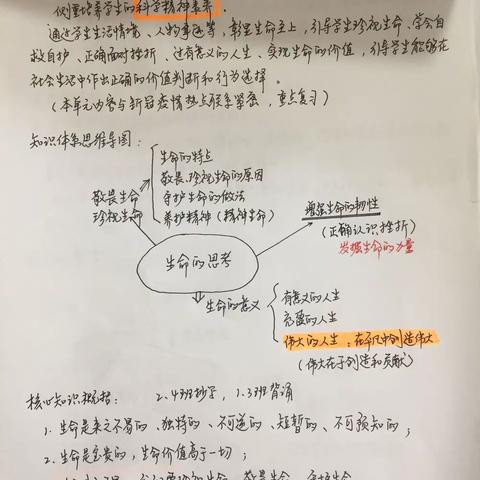 侧重培养学生的科学精神素养。
通过学生生活情境、人物事迹等，彰显生命至上，引导学生珍视生命、学会自
救自护、正确面对挫折、过有意义的人生、实现生命的价值，引导学生能够在
社会生活中作出正确的价值判断和行为选择。
（本单元内容与新冠疫情热点联系紧密，重点复习）
知识体系思维导图：
生命的特点
敬畏、珍视生命的原因
守护生命的做法
养护精神（精神生命）
敬畏生命
珍视生命
增强生命的韧性
（正确认识挫折）
发掘生命的力量
生命的思考
生命的意义
有意义的人生
充盈的人生
伟大的人生：在平凡中创造伟大
（伟大在于创造和贡献）
核心知识概括： 2.4班抄写，1.3班背诵
1. 生命是来之不易的、独特的、不可逆的、短暂的、不可预知的；
2. 生命是宝贵的，生命价值高于一切；